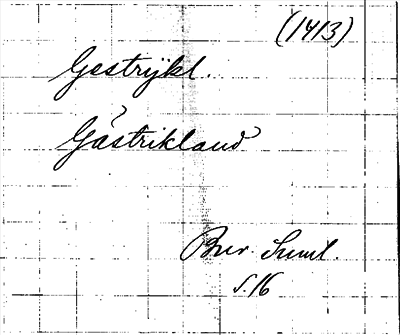 (1413)
Gestrijkl.
Gästrikland
Bur. Suml.
s. 16